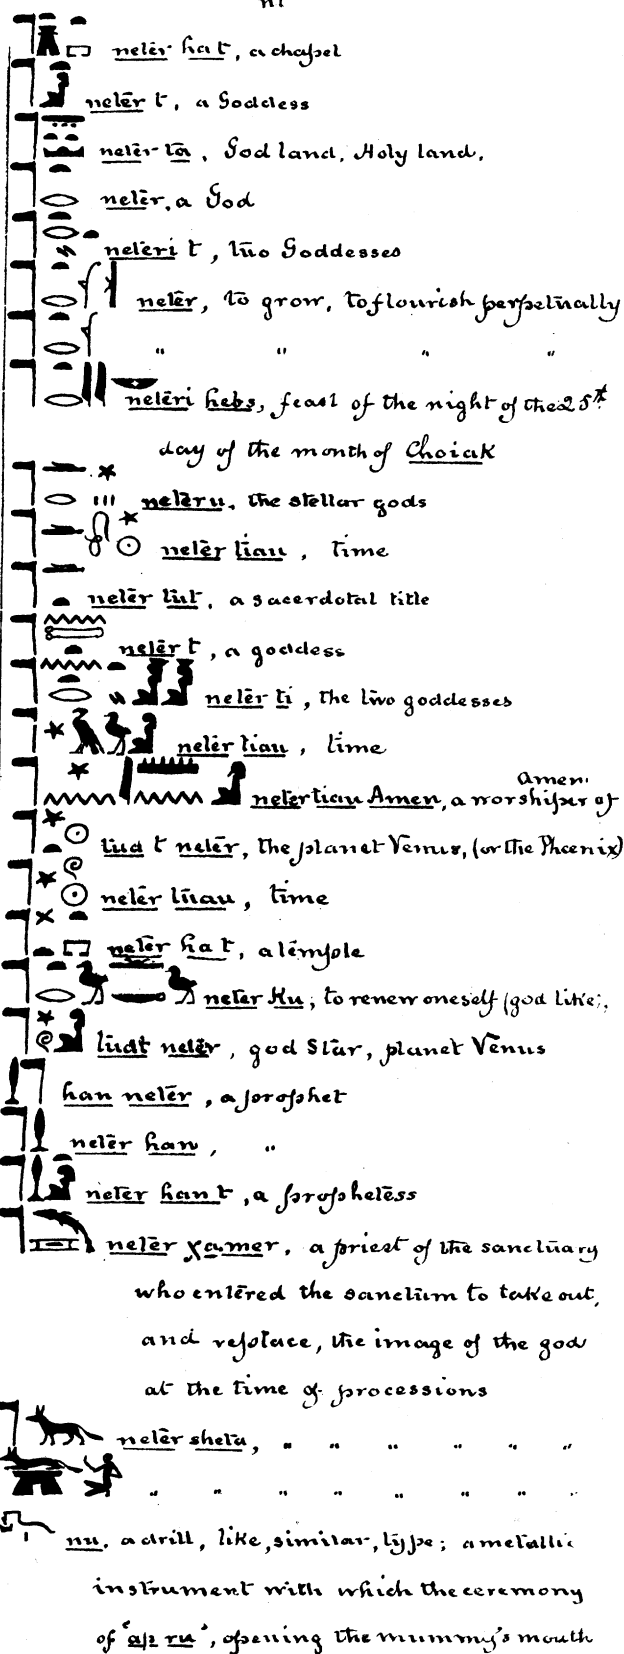 neter hat, a chapel
neter t, a Goddess
neter ta, God land, Holy land,
neter, a God
neteri t, two Goddesses
neter, to grow, to flourish perpetually
" " " "
neteri hebs, feast of the night of the 25th
day of the month of Choiak
neteru, the stellar gods
neter tiau, time
neter tut, a sacerdotal title
neter t, a goddess
neter ti, the two goddesses
neter tiau, time
Amen.
neter tiau Amen, a worshiper of
tua t neter, the planet Venus, (or the Phœnix)
neter tuau, time
neter hat, a temple
neter Ku; to renew oneself (god like),
tudt neter, god Star, planet Venus
han neter, a prophet
neter han, "
neter han t, a prophetess
neter χamer, a priest of the sanctuary
who entered the sanctum to take out,
and replace, the image of the god
at the time of processions
neter sheta, " " " " " "
" " " " " " " "
nu, a drill, like, similar, type; a metallic
instrument with which the ceremony
of "ap ru", opening the mummy's mouth